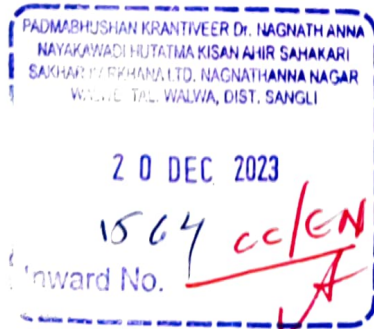 PADMABHUSHAN KRANTIVEER Dr. NAGNATH ANNA
NAYAKAWADI HUTATMA KISAN AHIR SAHAKARI
SAKHAR KARKHANA LTD. NAGNATHANNA NAGAR
TAL. WALWA, DIST. SANGLI
20 DEC 2023
1564 CC/EN
Inward No.